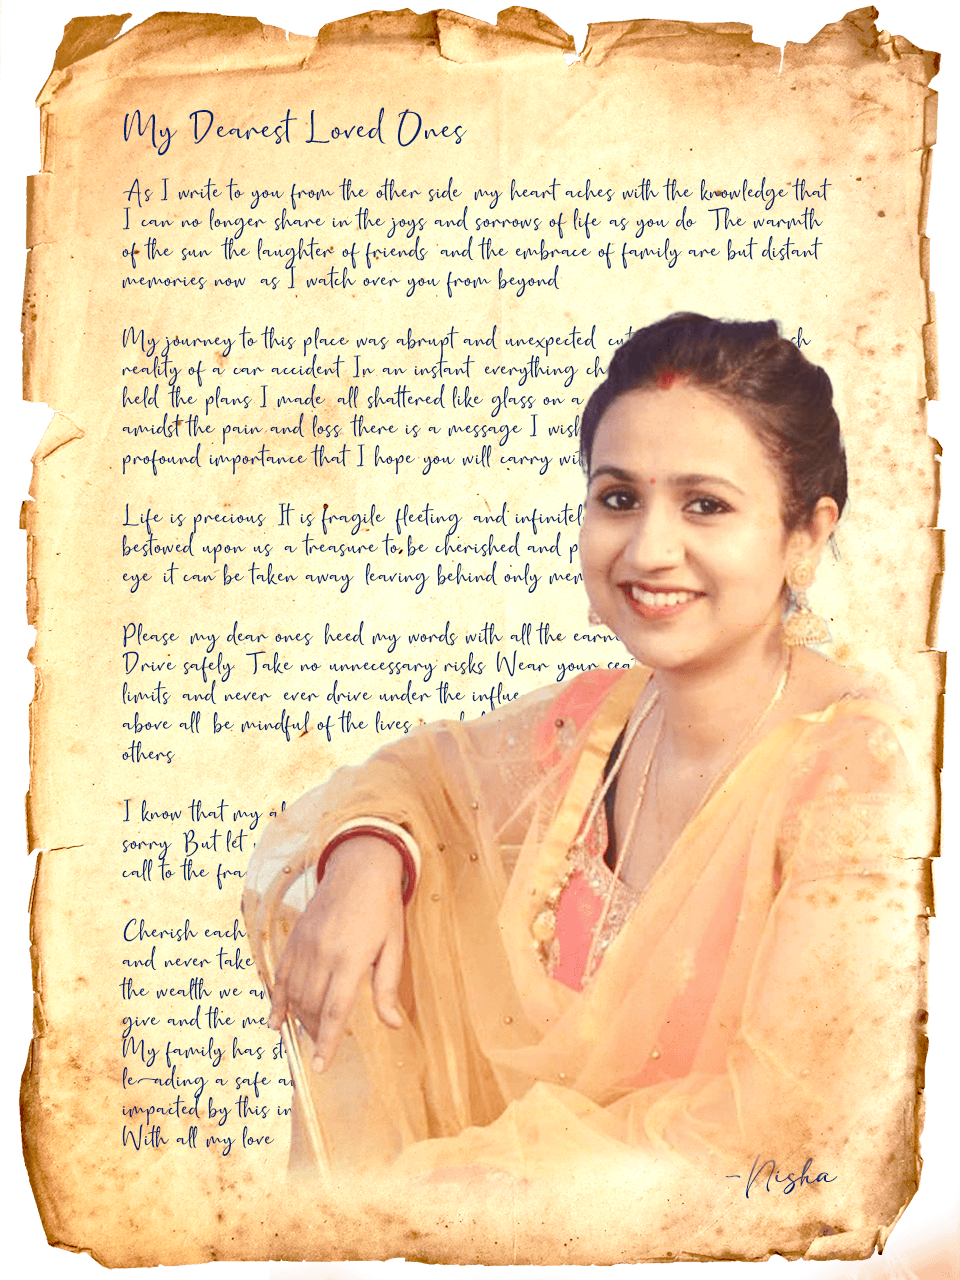 My Dearest Loved Ones
As I write to you from the other side my heart aches with the knowledge that
I can no longer share in the joys and sorrows of life as you do The warmth
of the sun the laughter of friends and the embrace of family are but distant
memories now as I watch over you from beyond
My journey to this place was abrupt and unexpected
reality of a car accident In an instant everything
held the plans I made all shattered like glass on a
amidst the pain and loss there is a message I
profound importance that I hope you will carry
Life is precious It is fragile fleeting and
bestowed upon us a treasure to be cherished and
eye it can be taken away leaving behind only
Please my dear ones heed my words with all the
Drive safely Take no unnecessary risks Wear your
limits and never ever drive under the
above all be mindful of the lives
others
I know that my
sorry But let
call to the
Cherish each
and never take
the wealth we
give and the
My family has
leading a safe
impacted by this
With all my love
-Nisha